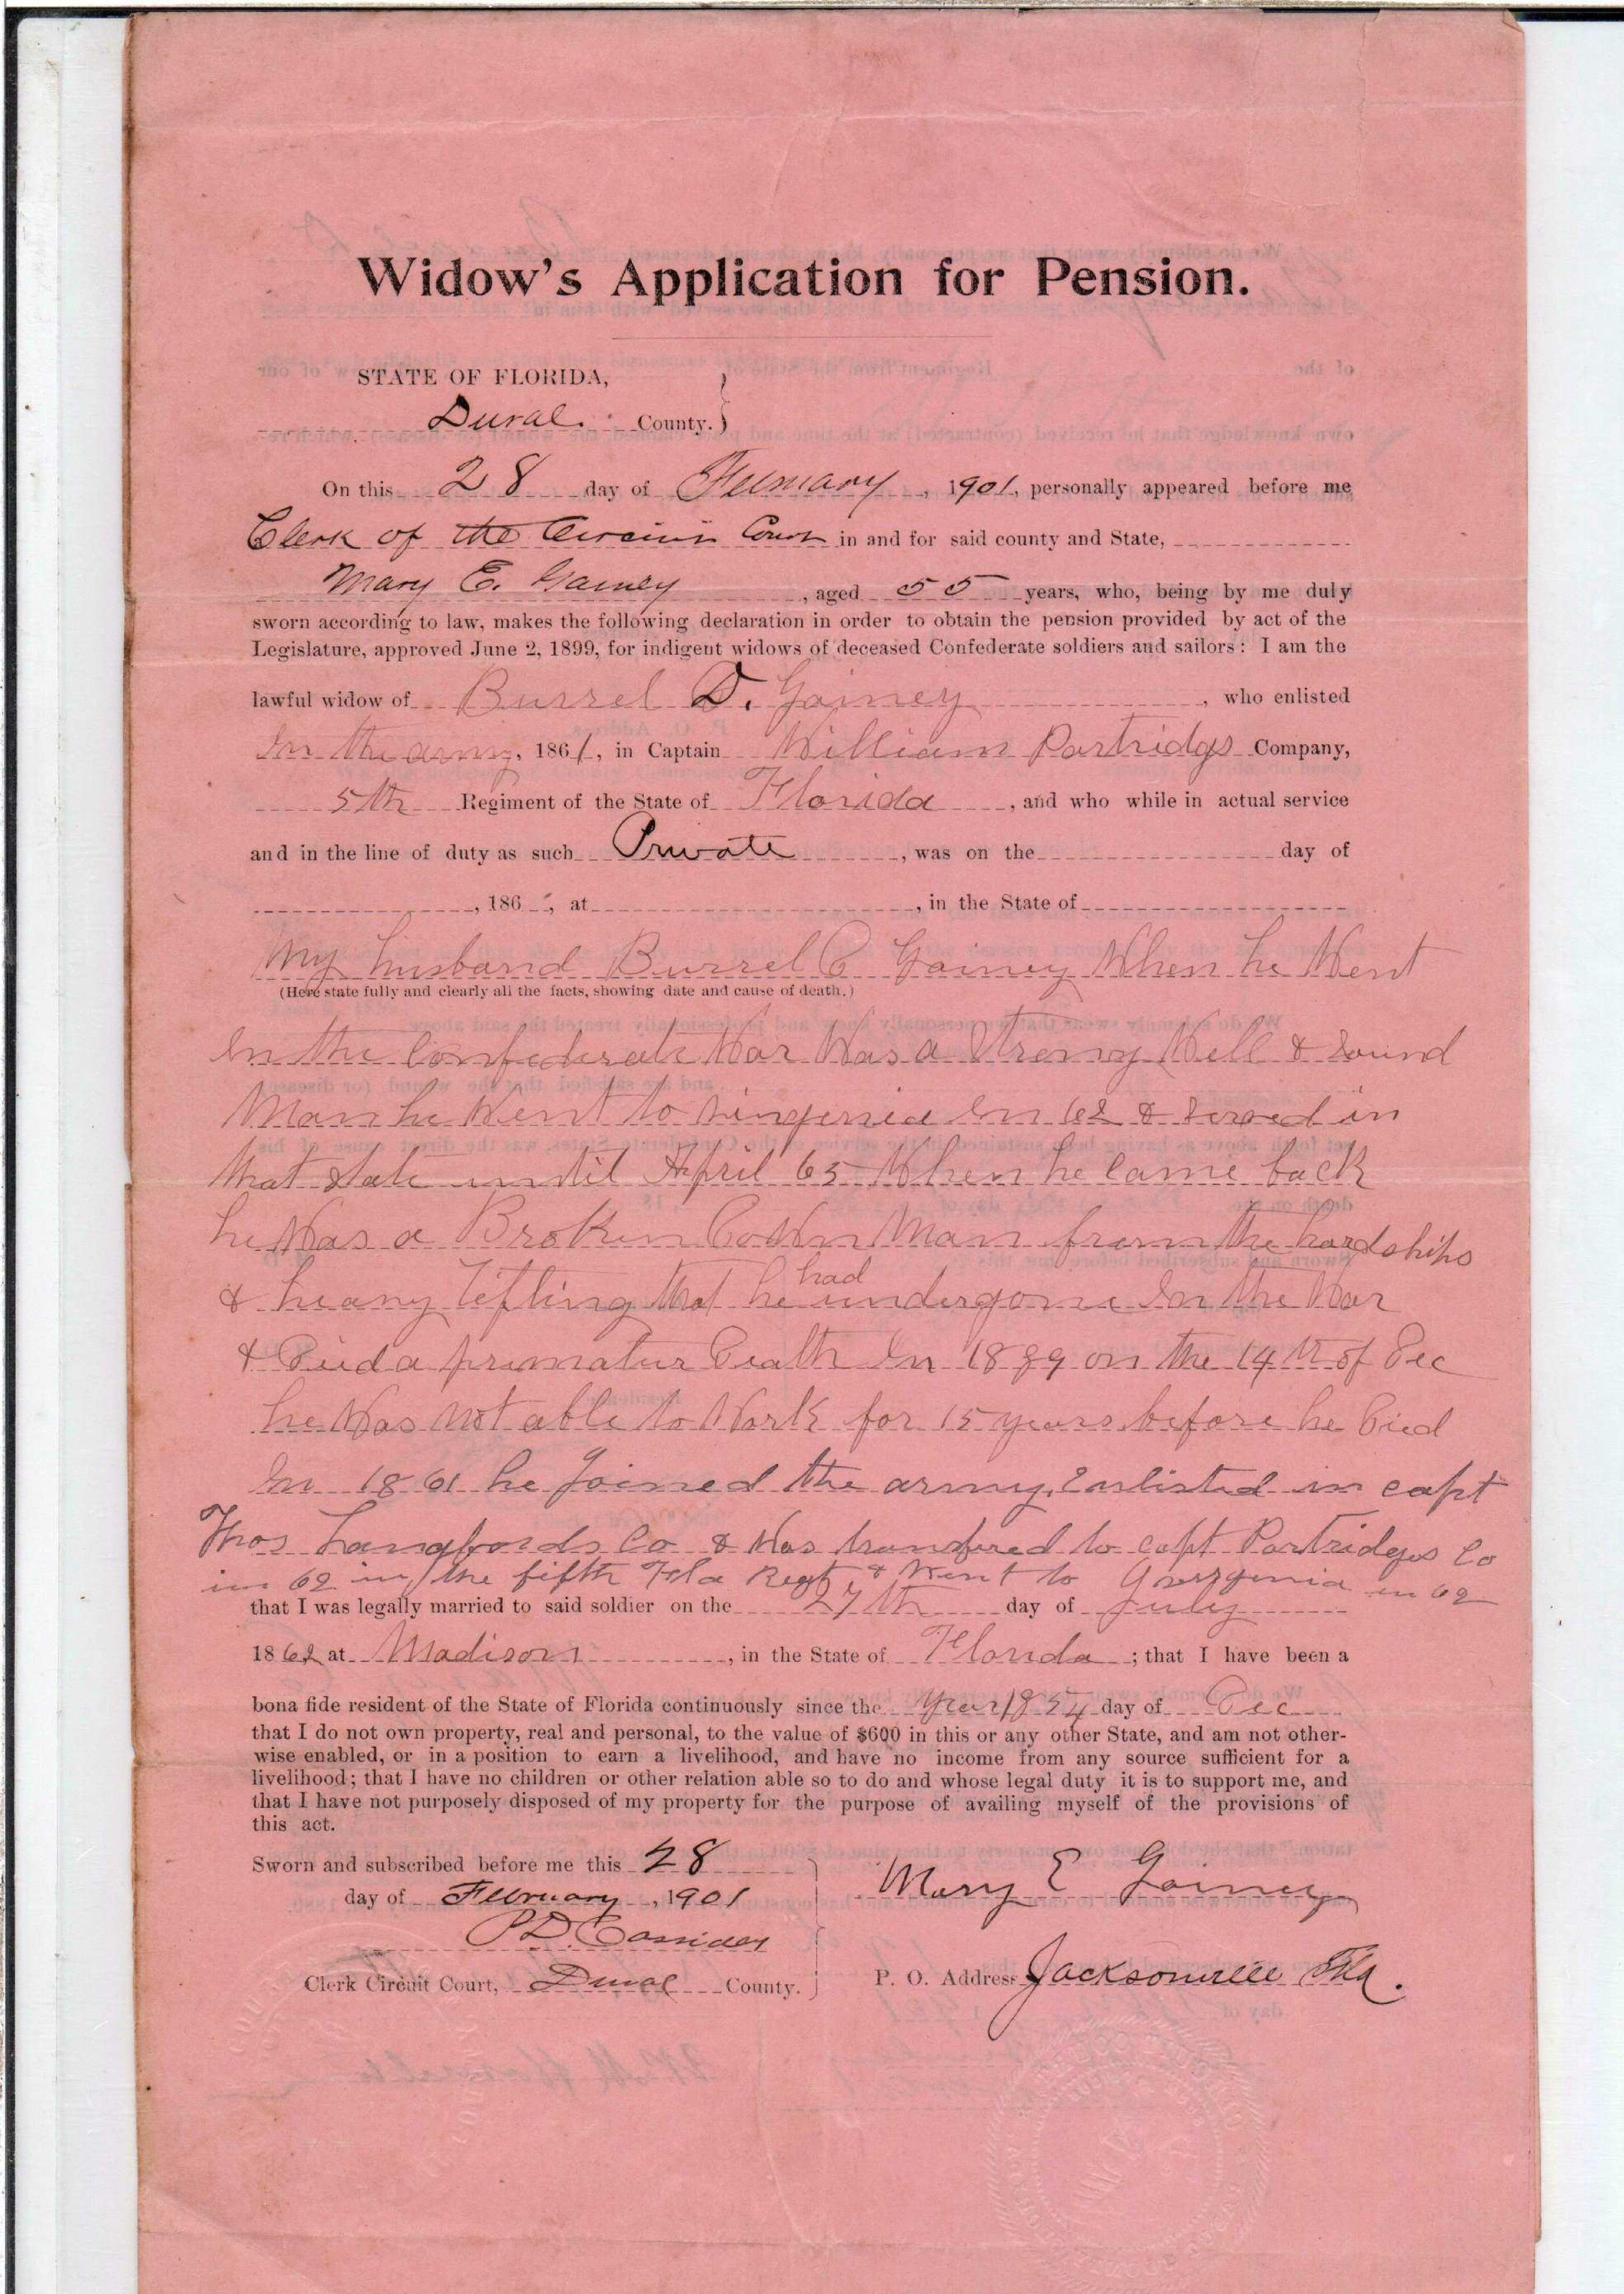 Widow's Application for Pension.
STATE OF FLORIDA,
Duval County.
On this 28 day of February, 1901, personally appeared before me
Clerk of the Circuit Court in and for said county and State,
Mary E. Gainey, aged 55 years, who, being by me duly
sworn according to law, makes the following declaration in order to obtain the pension provided by act of the
Legislature, approved June 2, 1899, for indigent widows of deceased Confederate soldiers and sailors: I am the
lawful widow of Burrel D. Gainey, who enlisted
In the army, 1861, in Captain William Partridgs Company,
5th Regiment of the State of Florida, and who while in actual service
and in the line of duty as such Private, was on the day of
, 186 , at , in the State of
My husband Burrel D Gainey When he Went
(Here state fully and clearly all the facts, showing date and cause of death.)
In the Confederate War Was a Strong Well & Sound
Man he Went to Virgenia In 62 & Served in
that state until April 65 When he Came back
he Was a Broken Down Man from the hardships
& heavy Lifting that he had undergone In the War
& Died a primatur Death In 1889 on the 14th of Dec
he Was Not able to Work for 15 years before he Died
In 1861 he Joined the army, Enlisted in capt
Thos Langfords Co & Was transfired to capt Partridges Co
in 62 in the fifth Fla Regt & Went to in 62
that I was legally married to said soldier on the 27th day of July
1862 at Madison, in the State of Florida; that I have been a
bona fide resident of the State of Florida continuously since the Year 1854 day of Dec
that I do not own property, real and personal, to the value of $600 in this or any other State, and am not other-
wise enabled, or in a position to earn a livelihood, and have no income from any source sufficient for a
livelihood; that I have no children or other relation able so to do and whose legal duty it is to support me, and
that I have not purposely disposed of my property for the purpose of availing myself of the provisions of
this act.
Sworn and subscribed before me this 28
day of February, 1901
P D Cassidey
Clerk Circuit Court, Duval County.
Mary E Gainey
P. O. Address Jacksonville Fla.